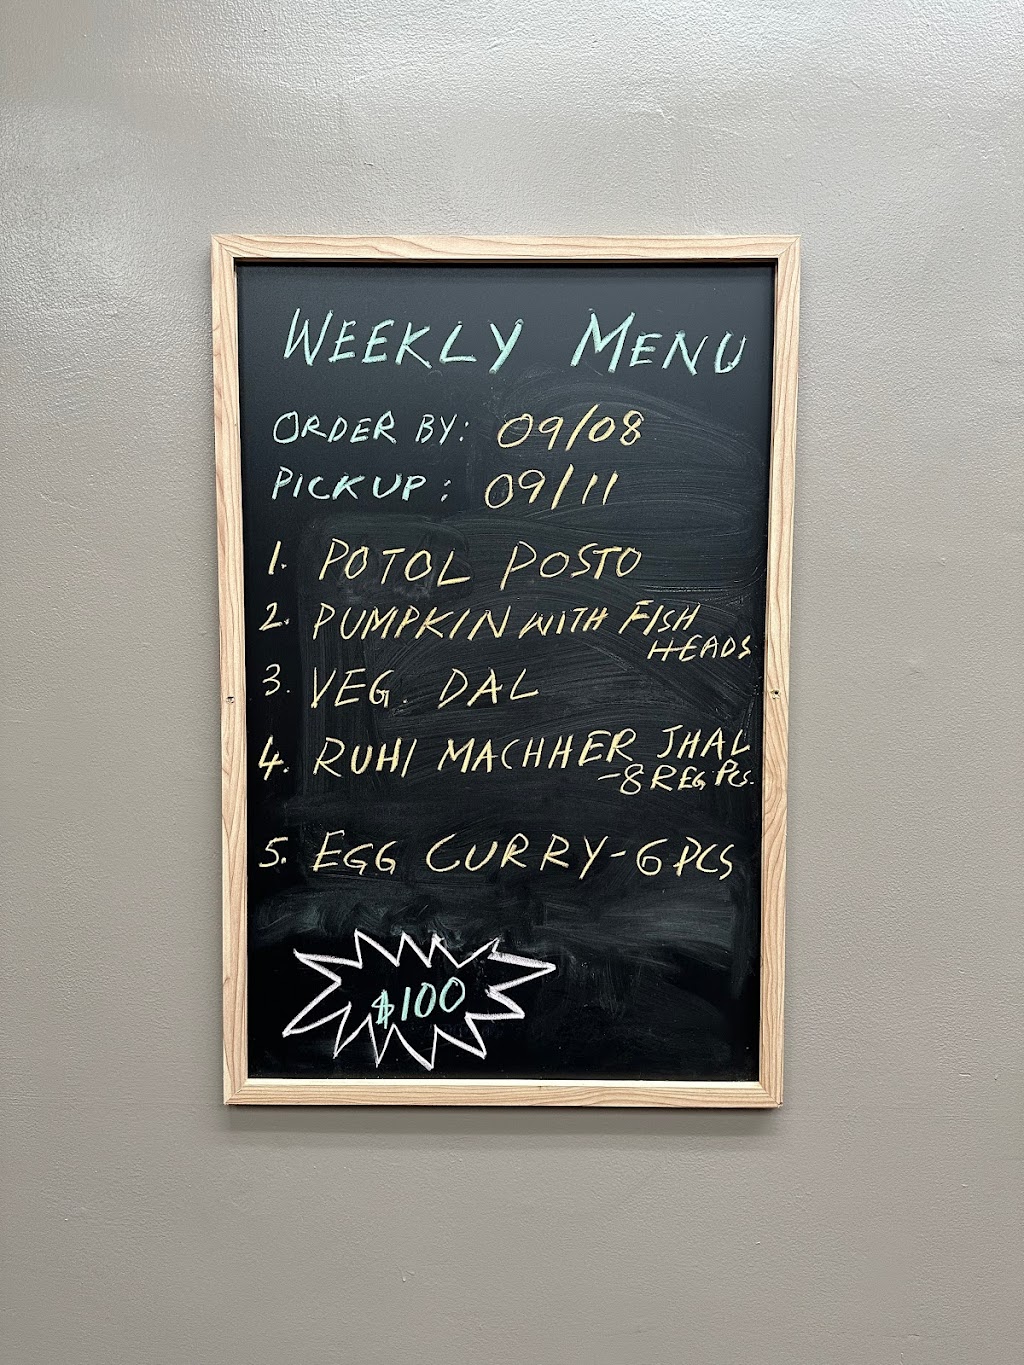 WEEKLY MENU
ORDER BY: 09/08
PICKUP: 09/11
1. POTOL POSTO
2. PUMPKIN WITH FISH
HEADS
3. VEG. DAL
4. RUHI MACHHER JHAL
-8 REG PCS.
5. EGG CURRY-6 PCS
$100